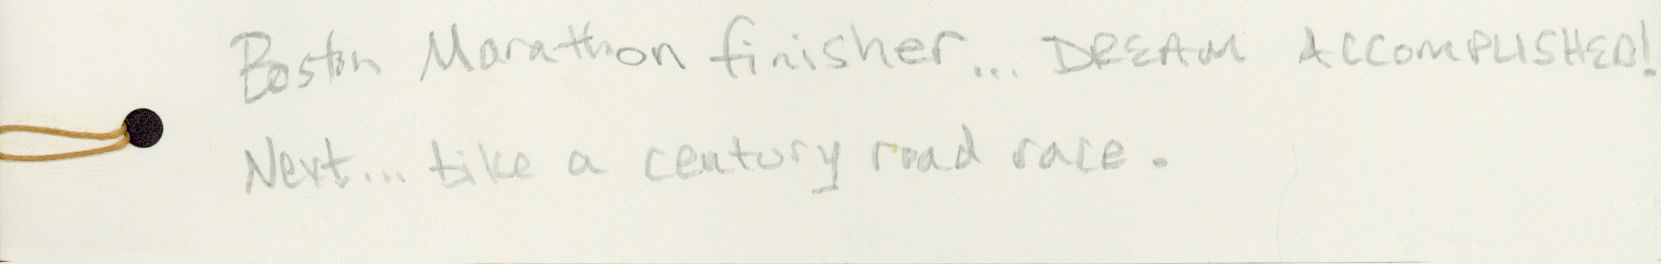 Boston Marathon finisher... DREAM ACCOMPLISHED!
Next... bike a century road race.